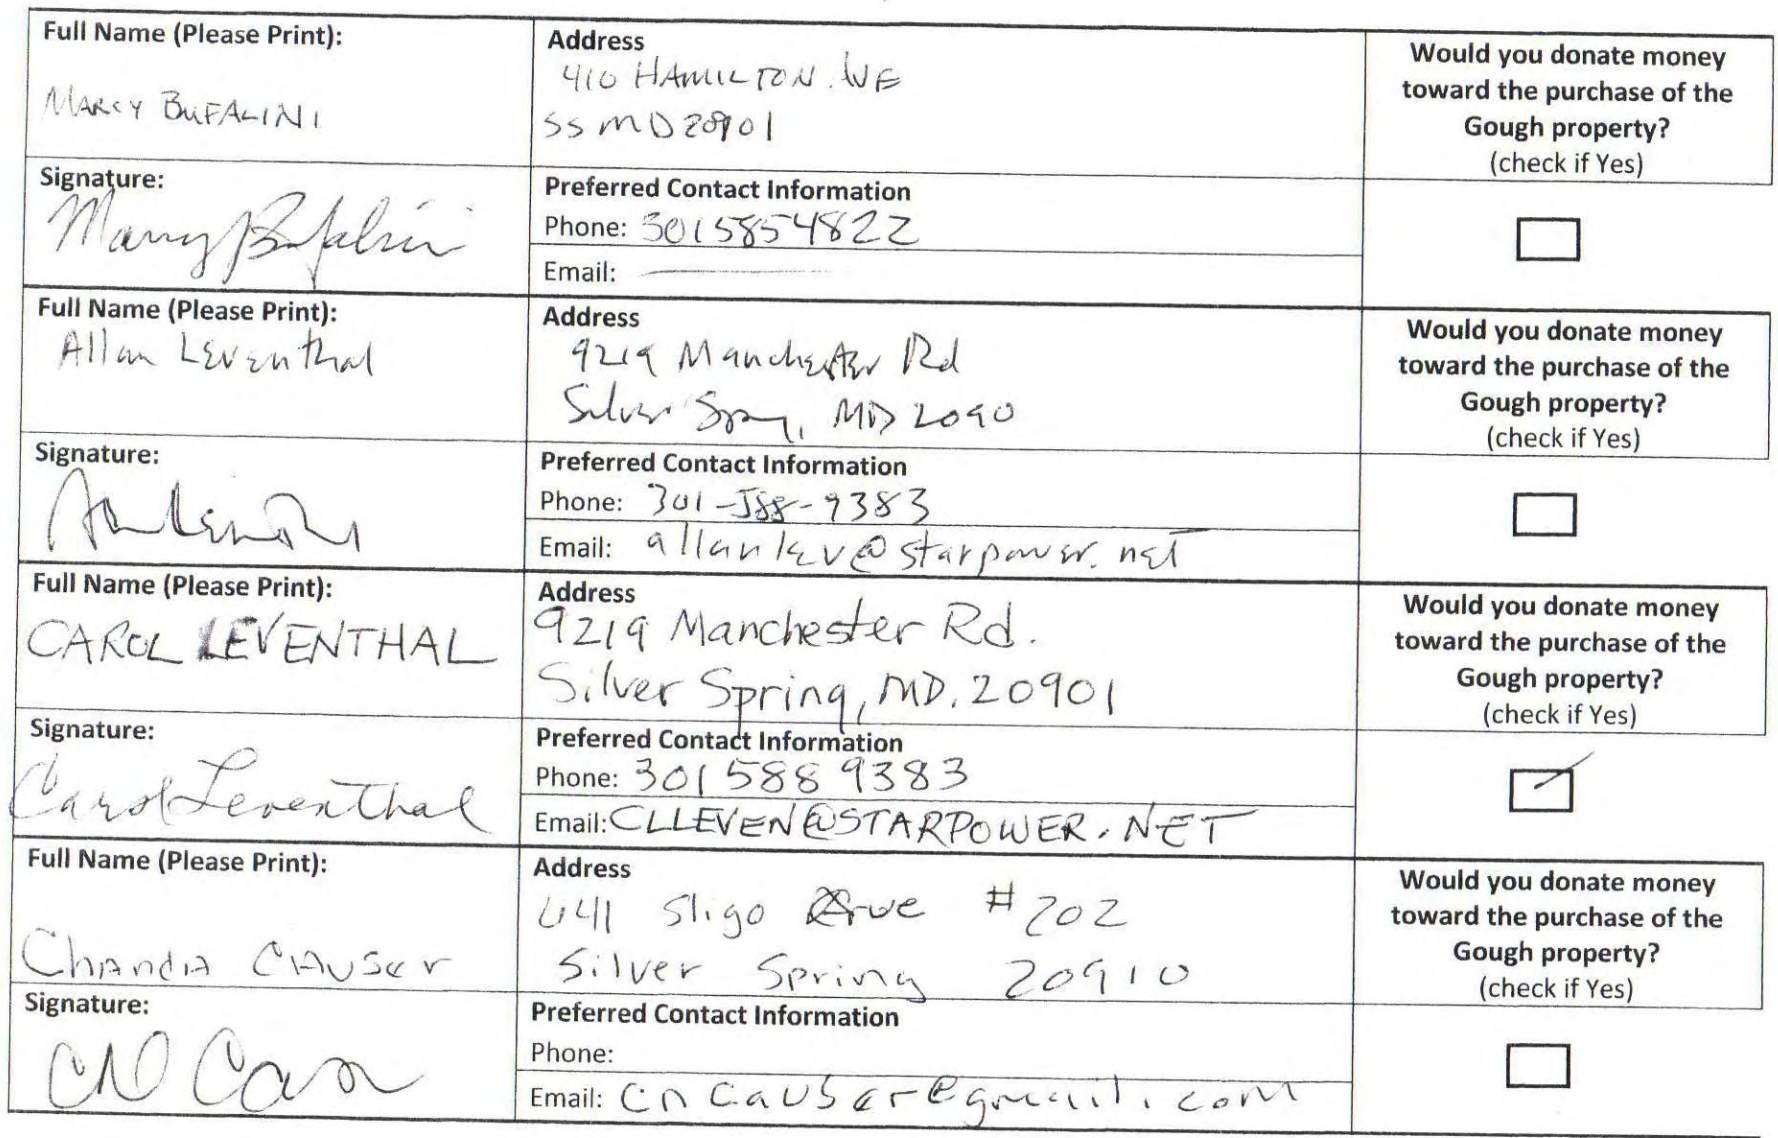 Full Name (Please Print):
MARCY BUFALINI
Address
410 HAMILTON AVE
SS MD 20901
Would you donate money
toward the purchase of the
Gough property?
(check if Yes)
Signature:
Marcy Bufalini
Preferred Contact Information
Phone: 3015854822
Email:
Full Name (Please Print):
Allan Leventhal
Address
9219 Manchester Rd
Silver Spring, MD 2090
Would you donate money
toward the purchase of the
Gough property?
(check if Yes)
Signature:
Preferred Contact Information
Phone: 301-588-9383
Email: allanlev@starpower.net
Full Name (Please Print):
CAROL LEVENTHAL
Address
9219 Manchester Rd.
Silver Spring, MD. 20901
Would you donate money
toward the purchase of the
Gough property?
(check if Yes)
Signature:
Carol Leventhal
Preferred Contact Information
Phone: 301 588 9383
Email: CLLEVEN@STARPOWER.NET
Full Name (Please Print):
Chanda Causer
Address
641 Sligo Ave #202
Silver Spring 20910
Would you donate money
toward the purchase of the
Gough property?
(check if Yes)
Signature:
Preferred Contact Information
Phone:
Email: cncauser@gmail.com